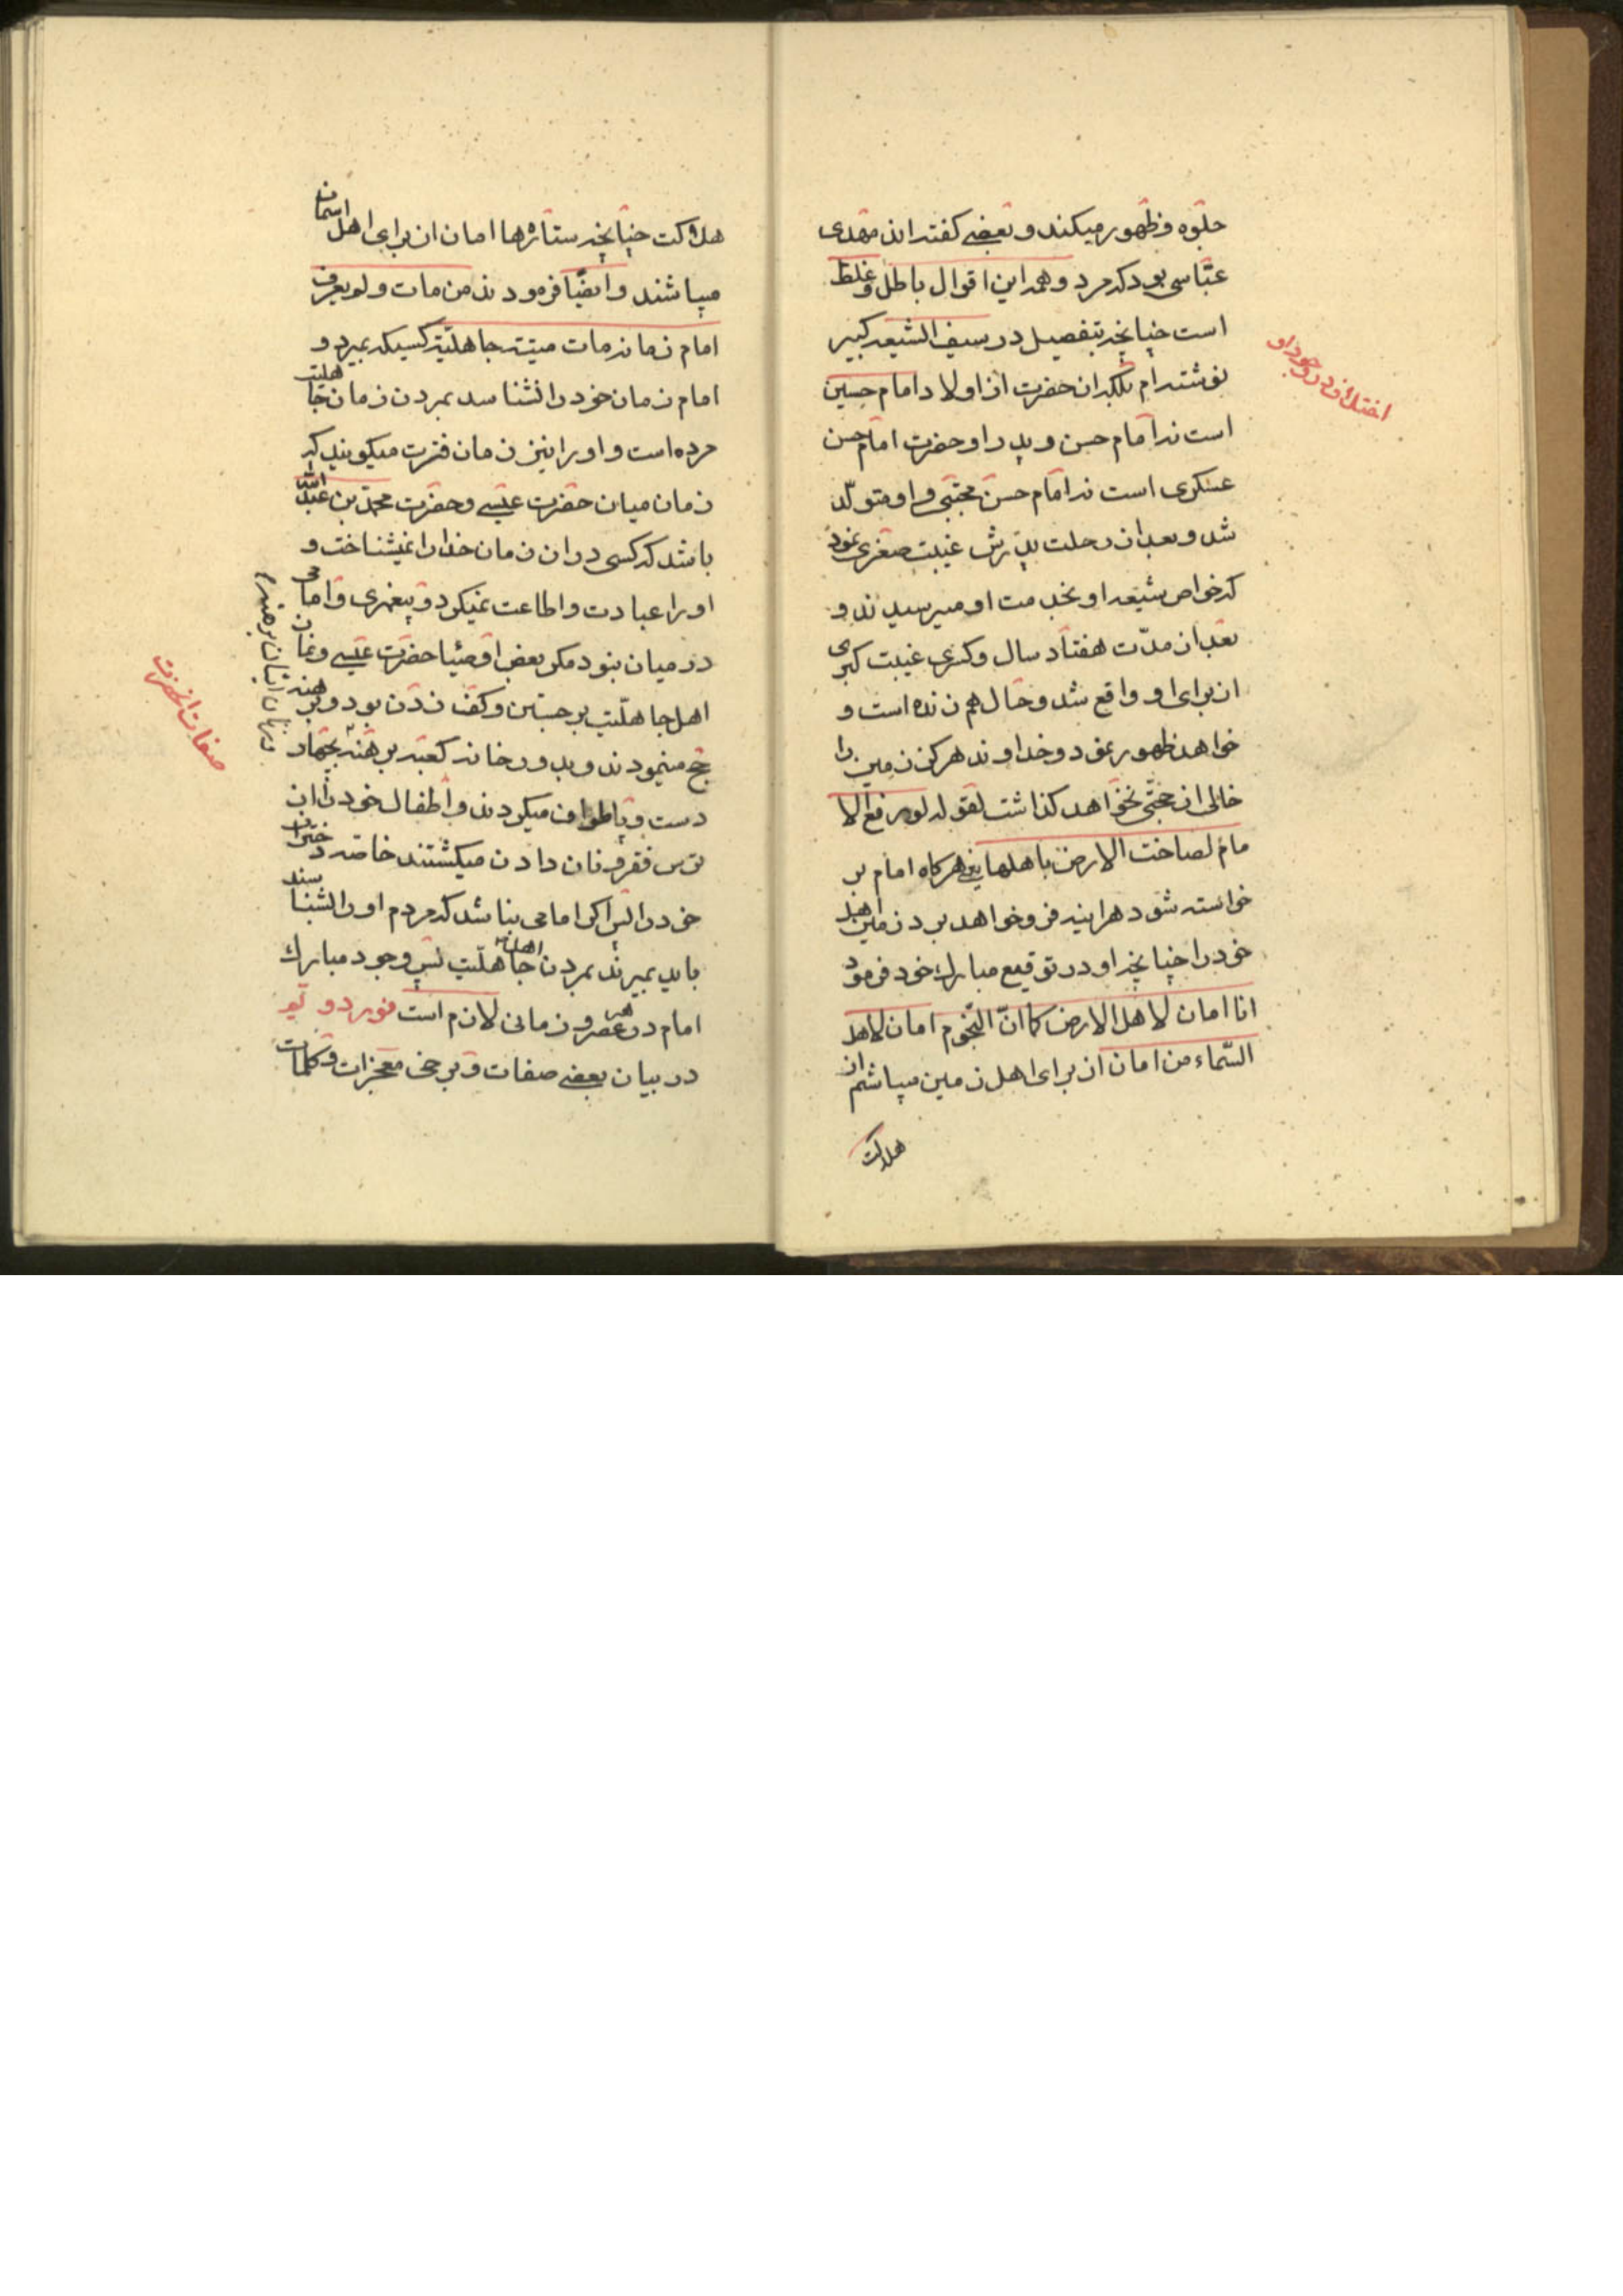 جلوه و ظهور میکند و بعضی گفته اند مهدی
عبّاسی بود که مرد و همه این اقوال باطل و غلط
است چنانچه بتفصیل در سیف الشیعه کبیر
نوشته ام بلکه ان حضرت از اولاد امام حسین
است نه امام حسن و پدر او حضرت امام حسن
عسکری است نه امام حسن مجتبی و او متولّد
شد و بعد از رحلت پدرش غیبت صغری نمود
که خواص شیعه او بخدمت او میرسیدند و
بعد از مدّت هفتاد سال و کسری غیبت کبری
از برای او واقع شد و حال هم زنده است و
خواهد ظهور نمود و خداوند هرگز زمین را
خالی از حجّتی نخواهد گذاشت لقوله لو رفع الا
مام لصاخت الارض باهلها یعنی هرگاه امام بر
خواسته شود هراینه فرو خواهد برد زمین اهل
خود را چنانچه او در توقیع مبارك خود فرمود
انا امان لاهل الارض کما انّ النّجوم امان لاهل
السّماء من امان از برای اهل زمین میباشم از
هلاکت
اختلاف در وجود او
هلاکت چنانچه ستاره ها امان از برای اهل اسمان
میباشند و ایضًا فرمودند من مات و لم یعرف
امام زمانه مات میتة جاهلیّة کسیکه بمیرد و
امام زمان خود را نشناسد بمردن زمان جاهلیّت
مرده است و او را نیز زمان فترت میگویند که
زمان میان حضرت عیسی و حضرت محمّد بن عبد الله
باشد که کسی در ان زمان خدا را نمیشناخت و
او را عبادت و اطاعت نمیکرد و پیغمبری و امامی
در میان نبود مگر بعض اوصیا حضرت عیسی و نماز
اهل جاهلیّت برجستن و کف زدن بود و برهنه
حج مینمودند و بدور خانه کعبه برهنه بچهار
دست و پا طواف میکردند و اطفال خود را از
ترس فقر و نان دادن میکشتند خاصّه دختران
خود را پس اگر امامی نباشد که مردم او را بشناسند
باید بمیرند بمردن اهل جاهلیّت پس وجود مبارك
امام در هر عصر و زمانی لازم است نور دویّم
در بیان بعضی صفات و برخی معجزات و کلمات
صفات انحضرت